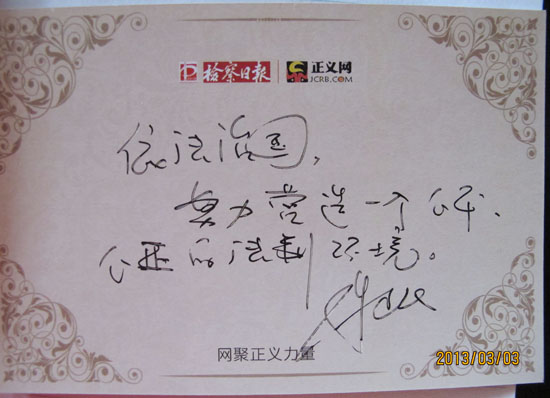 检察日报 正义网
JCRB.COM
依法治国，
努力营造一个公平、
公正的法制环境。
网聚正义力量
2013/03/03